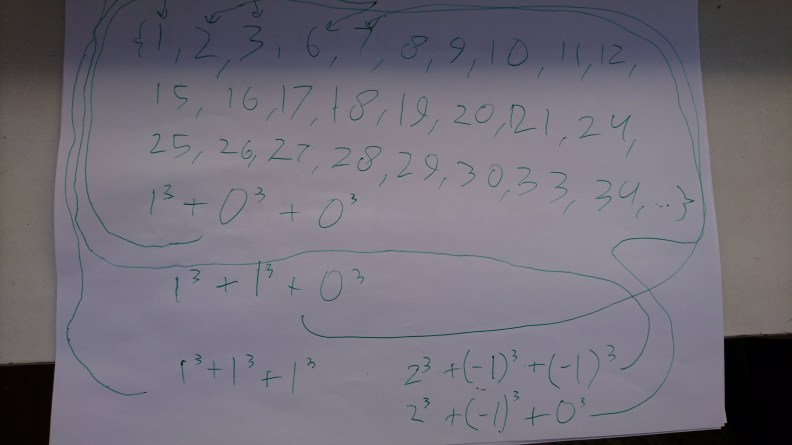 {1, 2, 3, 6, 7, 8, 9, 10, 11, 12,
15, 16, 17, 18, 19, 20, 21, 24,
25, 26, 27, 28, 29, 30, 33, 34, ...}
1³ + 0³ + 0³
1³ + 1³ + 0³
1³ + 1³ + 1³
2³ + (-1)³ + (-1)³
2³ + (-1)³ + 0³